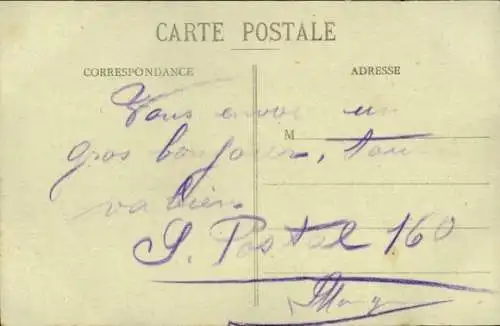 CARTE POSTALE
CORRESPONDANCE
ADRESSE
Vous envoi un
M
gros bonjour, tout
va bien
S. Postal 160